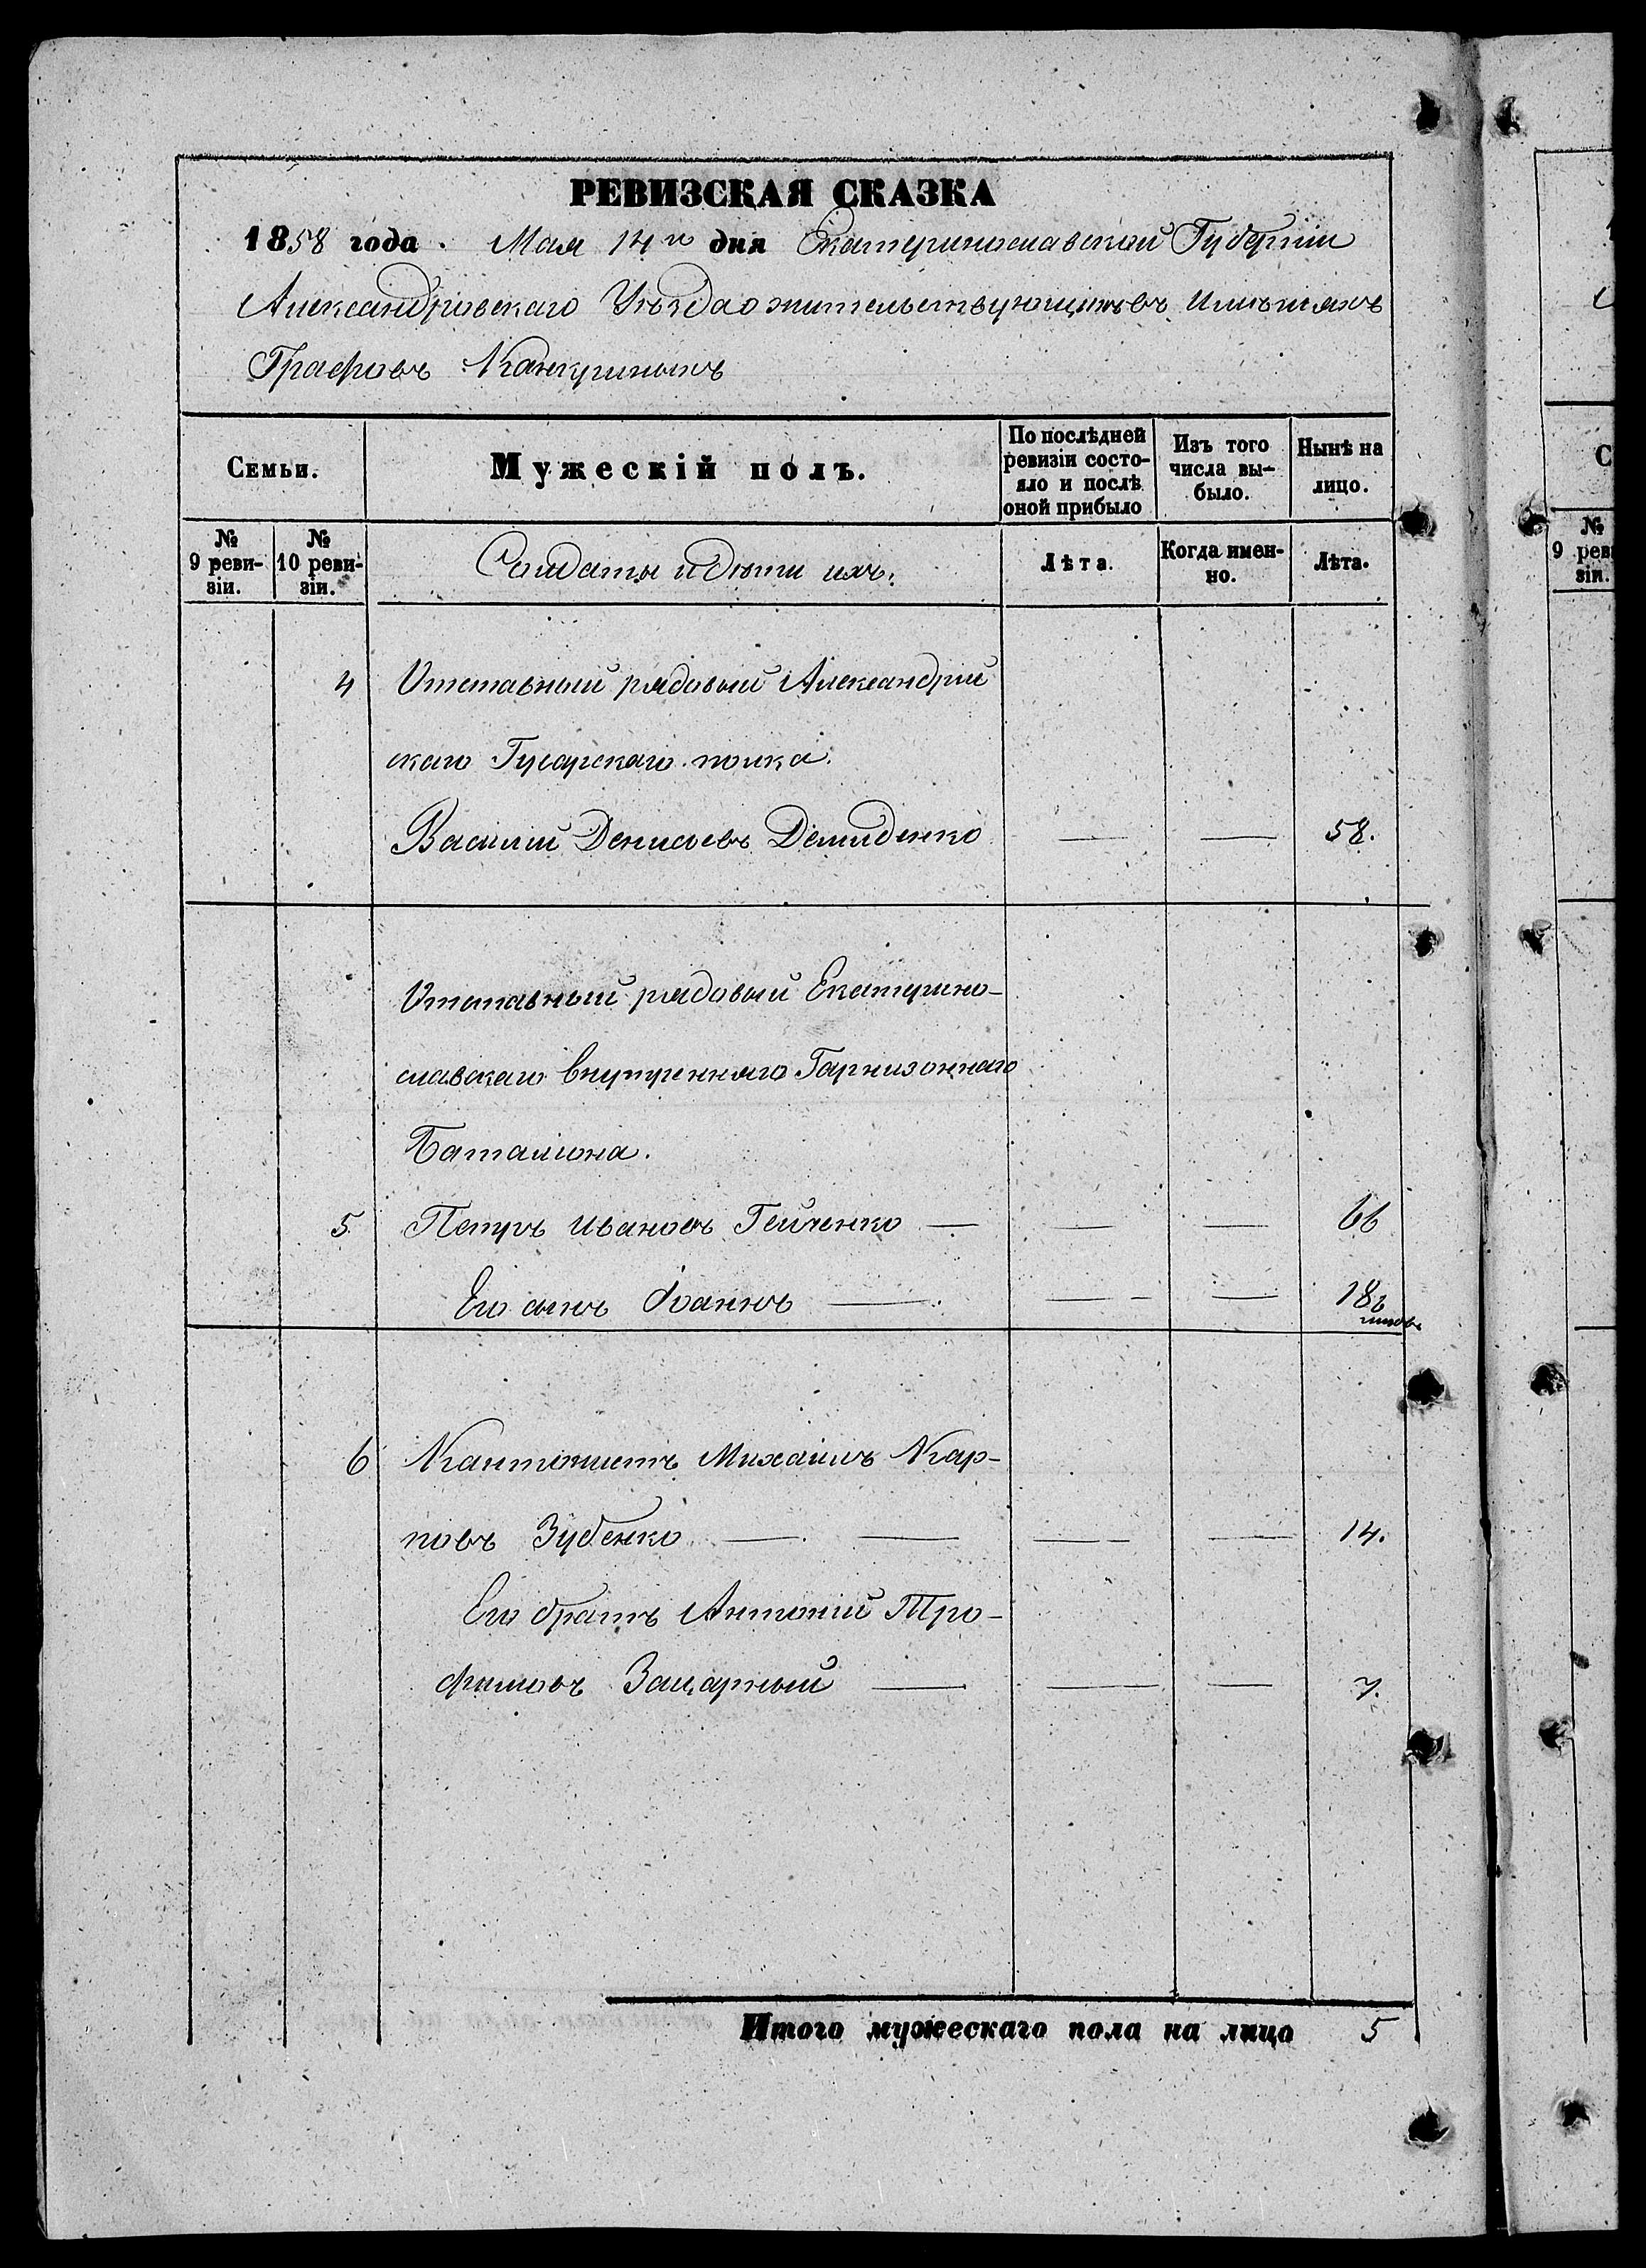 РЕВИЗСКАЯ СКАЗКА
1858 года. Мая 14го дня Екатеринославской Губерніи
Александровскаго Уѣзда о жительствующихъ въ имѣніяхъ
Графовъ Канкриныхъ
Семьи.
Мужескій полъ.
По послѣдней ревизіи состо-
яло и послѣ оной прибыло
Изъ того числа вы-
было.
Нынѣ на лицо.
№ 9 реви-
зіи.
№ 10 реви-
зіи.
Солдаты и дѣти ихъ.
Лѣта.
Когда имен-
но.
Лѣта.
4 Отставный рядовый Александрій
скаго Гусарскаго полка.
Василий Денисьевъ Демиденко — — 58.
Отставный рядовый Екатерино-
славскаго внутренняго Гарнизоннаго
Баталиона.
5 Петръ Ивановъ Гейченко — — — 66
Его сынъ Іоаннъ — — — 18
6 Кантонистъ Михаилъ Кар-
повъ Зубенко — — — — 14.
Его братъ Антоній Тро-
фимовъ Зацарный — — — 7.
Итого мужескаго пола на лицо 5
С
№ 9 рев
зіи.